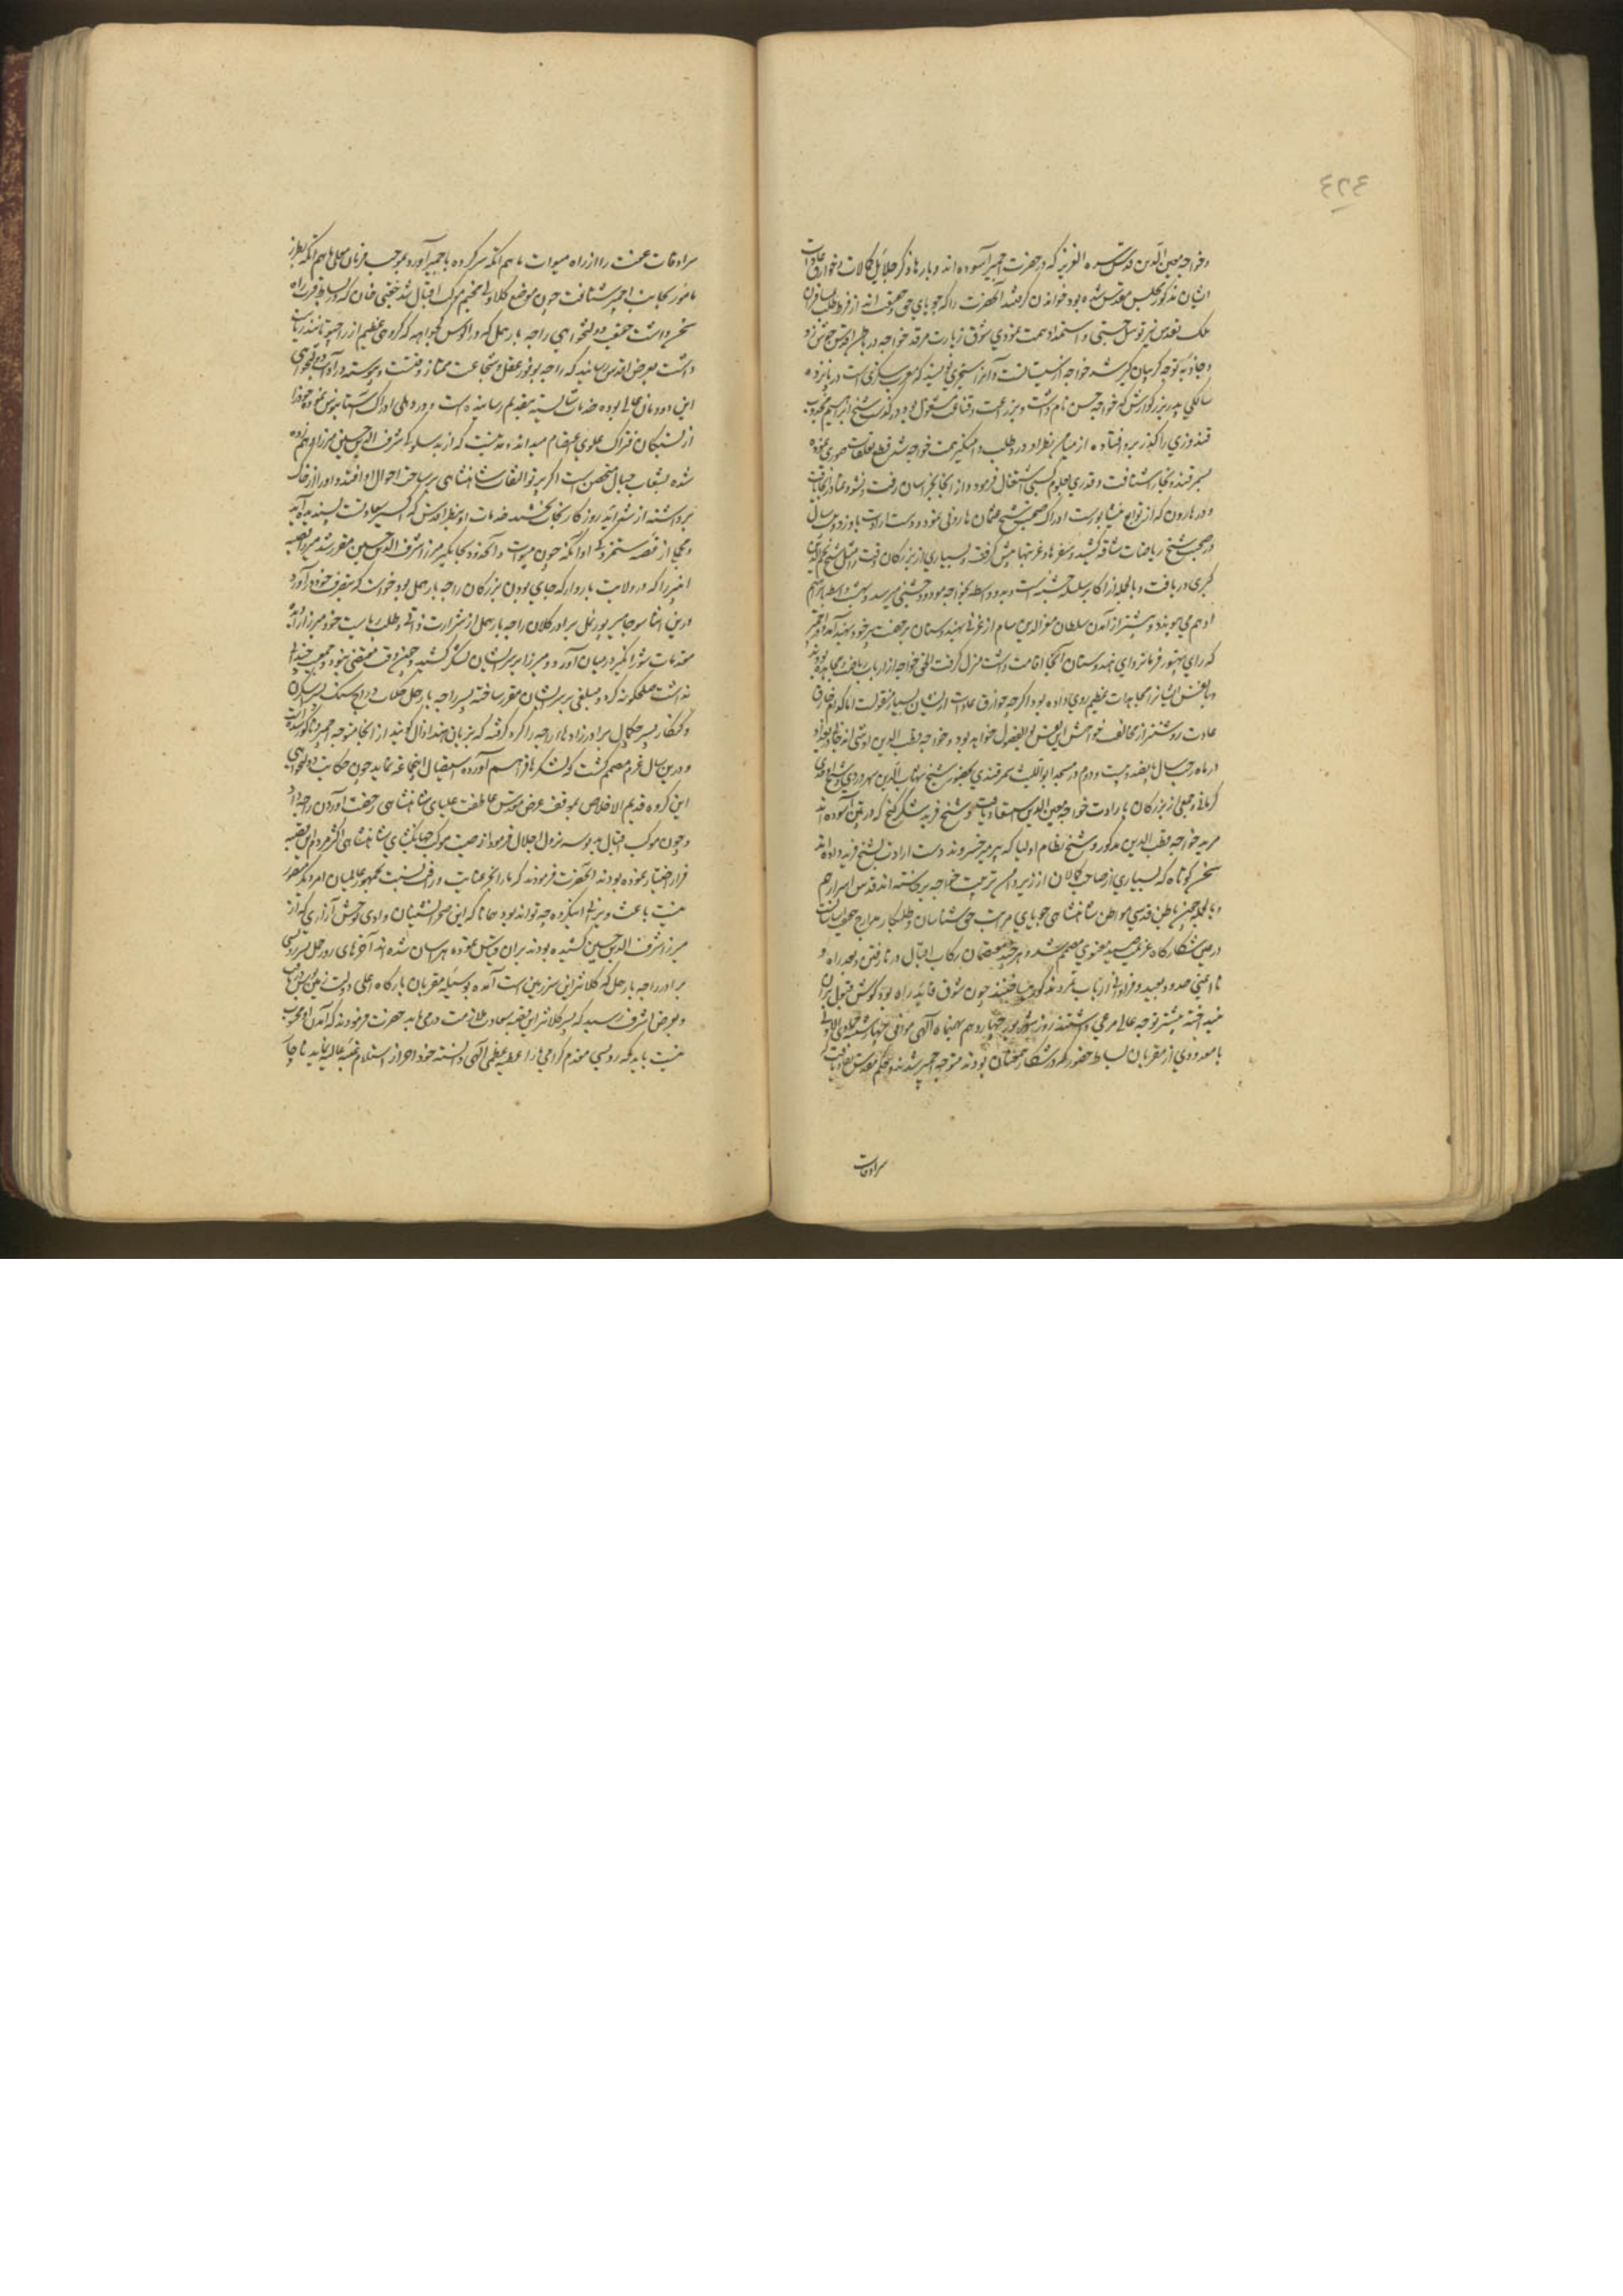 ٤٢٤
و خواجه معین الدین قدس سره العزیز که در حضرت اجمیر آسوده اند و بارها ذکر جلایل کمالات و خوارق عادات
ایشان مذکور مجلس مقدس شده بود خواندن گرفتند آنحضرت را که جویای حق و حقیقت اند از فرط طلب
ملک تقدس نیز توسل جستی و استمداد همت نمودی شوق زیارت مرقد خواجه در باطن اقدس جوش زد
و جاذبه توجه گریبان گیر شد خواجه از سیستانست و آنرا سجزی نویسند که معرب سکزی است در پانزده
سالگی پدر بزرگوارش که خواجه حسن نام داشت و بزراعت و قناعت مشغول بود درگذشت شیخ ابراهیم مجذوب
قندوزی را گذر بروافتاده از میامن نظر او درد طلب دامنگیر همت خواجه شد قطع تعلقات صوری نموده
بسمرقند و بخارا شتافت و قدری بعلوم کسبی اشتغال فرمود و از آنجا بخراسان رفت و نشوونما در آنجا یافت
و در هارون که از توابع نیشابورست ادراک صحبت شیخ عثمان هارونی نمود و دست ارادت باو زد و بیست سال
در صحبت شیخ ریاضات شاقه کشید و سفرها و غربتها پیش گرفته و بسیاری از بزرگان وقت را مثل شیخ نجم الدین
کبری دریافت و بالجمله از اکابر سلسله چشتیه است و بدو واسطه بخواجه مودود چشتی میرسد و بهشت واسطه بابراهیم
ادهم می پیوندد و پیشتر از آمدن سلطان معزالدین سام از غزنی بهندوستان برخصت پیر خود بهند آمد و در اجمیر
که رای پتهورا فرمانروای هندوستان آنجا اقامت داشت منزل گرفت الحق خواجه از ارباب ریاضت و مجاهده بود
و بانفس ایشانرا مجاهدات عظیم روی داده بود اگرچه خوارق عادات ازیشان بسیار منقولست اما کدام خارق
عادت روشنتر از مخالفت خواهش این نفس بوالفضول خواهد بود و خواجه قطب الدین اوشی اندجانی در بغداد
در ماه رجب سال پانصد و بیست و دوم در مسجد ابواللیث سمرقندی بحضور شیخ شهاب الدین سهروردی و شیخ اوحدی
کرمانی و جمعی از بزرگان بارادت خواجه معین الدین استسعاد یافت و شیخ فرید شکر گنج که در پتن آسوده اند
مرید خواجه قطب الدین مذکور و شیخ نظام اولیا که پیر میر خسروند دست ارادت بشیخ فرید داده اند
سخن کوتاه که بسیاری از صاحب کمالان از زیر دامن تربیت خواجه برخاسته اند قدس اسرارهم
و بالجمله چون باطن قدسی مواطن شاهنشاهی جویای مرتبت حق شناسان و طلبکار مدارج حقیقت اساسانست
در عین شکارگاه عزیمت صید معنوی مصمم شد و هر چند معتصمان رکاب اقبال در نارفتن و بعد راه و
ناایمنی حدود بعید و فراوانی ارباب تمرد مذکور میساختند چون شوق قاید راه بود گوش قبول بران
نینداخته بیشتر توجه عالی مرعی داشتند روز چهاردهم بهمن ماه آلهی موافق چهارشنبه جمادی الاولی
با معدودی از مقربان بساط حضور که در شکار همعنان بودند متوجه اجمیر شدند و حکم مقدس نفاذ یافت که
سرادقات
سرادقات عفت را از راه میوات ماهم انگه سرکرده باجمیر آورد بموجب فرمان معلی ماهم انگه بطرز
مامور بجانب اجمیر شتافت چون موضع کلاولی مخیم موکب اقبال شد چغتی خان که در بساط قرب راه
سخن داشت حقیقت دولتخواهی راجه بارهمل که در الوس کچواهه که گروهی عظیم از راجپوتانند ریاست
داشت بعرض اقدس رسانید که راجه بوفور عقل و شجاعت ممتاز وقتست و پیوسته در آداب دولتخواهی
این دودمان عالی بوده خدمات شایسته بتقدیم رسانیده است و در دهلی ادراک آستانبوس نموده خود را
از بستگان فتراک علوی اعتصام میداند مدتیست که از بدسلوکی شرف الدین حسین میرزا متوهم
شده بشعاب جبال متحصن است اگر پرتو التفات شاهنشاهی بر ساحت احوال او افتد و او را از خاک
برداشته از شداید روزگار نجات بخشند خدمات او بنظر اقدس که اکسیر سعادتست پسندیده آید
و مجملی از قصه ستمزدگی او آنکه چون میوات و آنحدود بجاگیر میرزا شرف الدین حسین مقرر شد میرزا قصبه
انبیر را که در ولایت ماروار که جای بودن بزرگان راجه بارهمل بود خواست که بتصرف خود درآورد
درین اثنا سوجا پسر پورنمل برادر کلان راجه بارهمل از شرارت ذاتی و طلب ریاست خود میرزا را دیده
مقدمات شورانگیز در میان آورد و میرزا بر سر ایشان لشکر کشید و چون وقت مقتضی نبود و جمعیت چندانی
نداشت صلح گونه کرد و مبلغی بر ایشان مقرر ساخته پسر راجه بارهمل جگناته و راج سنگ پسر اسکرن
و کنگار پسر جگمال برادرزادهای راجه را گرو گرفته که بزبان هند اول گویند از آنجا متوجه اجمیر و ناگور شد
و درین سال عزم مصمم گشت که لشکرها فراهم آورده استیصال اینجماعه نماید چون حکایت دولتخواهی
این گروه قدیم الاخلاص بموقف عرض مقدس عاطفت علیای شاهنشاهی رخصت آوردن راجه داد
و چون موکب اقبال بدیوسه نزول اجلال فرمود از صیت موکب جهانگشای شاهنشاهی اکثر مردم این قصبه
فرار اختیار نموده بودند آنحضرت فرمودند که ما را بجز عنایت و رافت نسبت بجمهور عالمیان امر دیگر منظور
نیست باعث ویرانی اینگروه چه تواند بود همانا که این صحرانشینان وادی توحش آزاری که از
میرزا شرف الدین حسین کشیده بودند بران قیاس نموده هراسان شده اند آخرهای روز جمل پسر روپسی
برادر راجه بارهمل که کلانتر این سرزمین است آمده بوسیله مقربان بارگاه اعلی دولت زمین بوس یافت
و بعرض اشرف رسید که پسر کلانتر این قصبه بسعادت ملازمت درمی آید حضرت فرمودند که آمدن او محسوب
نیست باید که روپسی مقدم گرامی ما را عطیه عظمی آلهی دانسته خود احراز استلام عتبه عالیه نماید ناچار